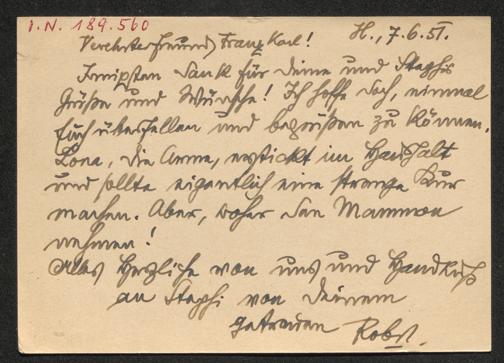 I.N. 189.560
H., 7.6.51.
Verehrter Freund, Franz Karl!
Innigsten Dank für Deine und Stephis
Grüße und Wünsche! Ich hoffe doch, einmal
Euch überfallen und begrüßen zu können.
Lona, die Arme, erstickt im Haushalt
und sollte eigentlich eine strenge Kur
machen. Aber, woher den Mammon
nehmen!
Alles Herzliche von uns und Handkuß
an Stephi von Deinem
getreuen Robst.